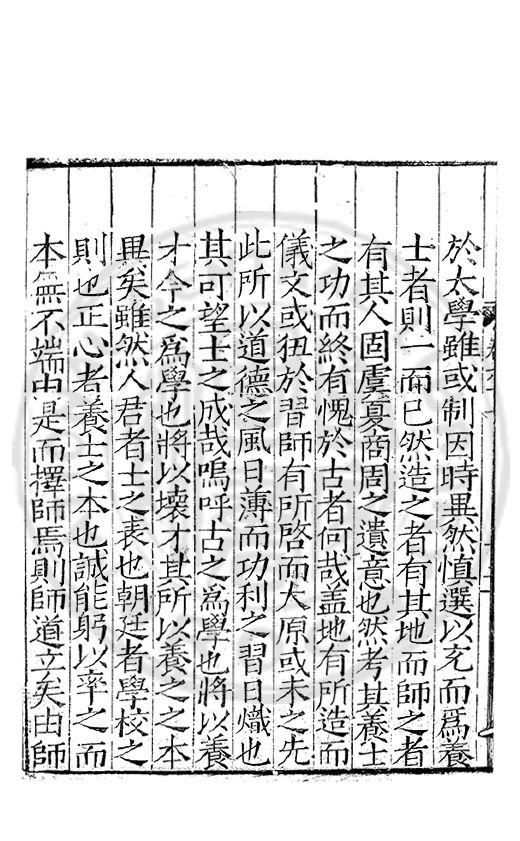 於太學雖或制因時異然慎選以充而爲養
士者則一而已然造之者有其地而師之者
有其人固虞夏商周之遺意也然考其養士
之功而終有愧於古者何哉盖地有所造而
儀文或狃於習師有所啓而大原或未之先
此所以道德之風日薄而功利之習日熾也
其可望士之成哉嗚呼古之爲學也將以養
才今之爲學也將以壞才其所以養之之本
異矣雖然人君者士之表也朝廷者學校之
則也正心者養士之本也誠能躬以率之而
本無不端由是而擇師焉則師道立矣由師